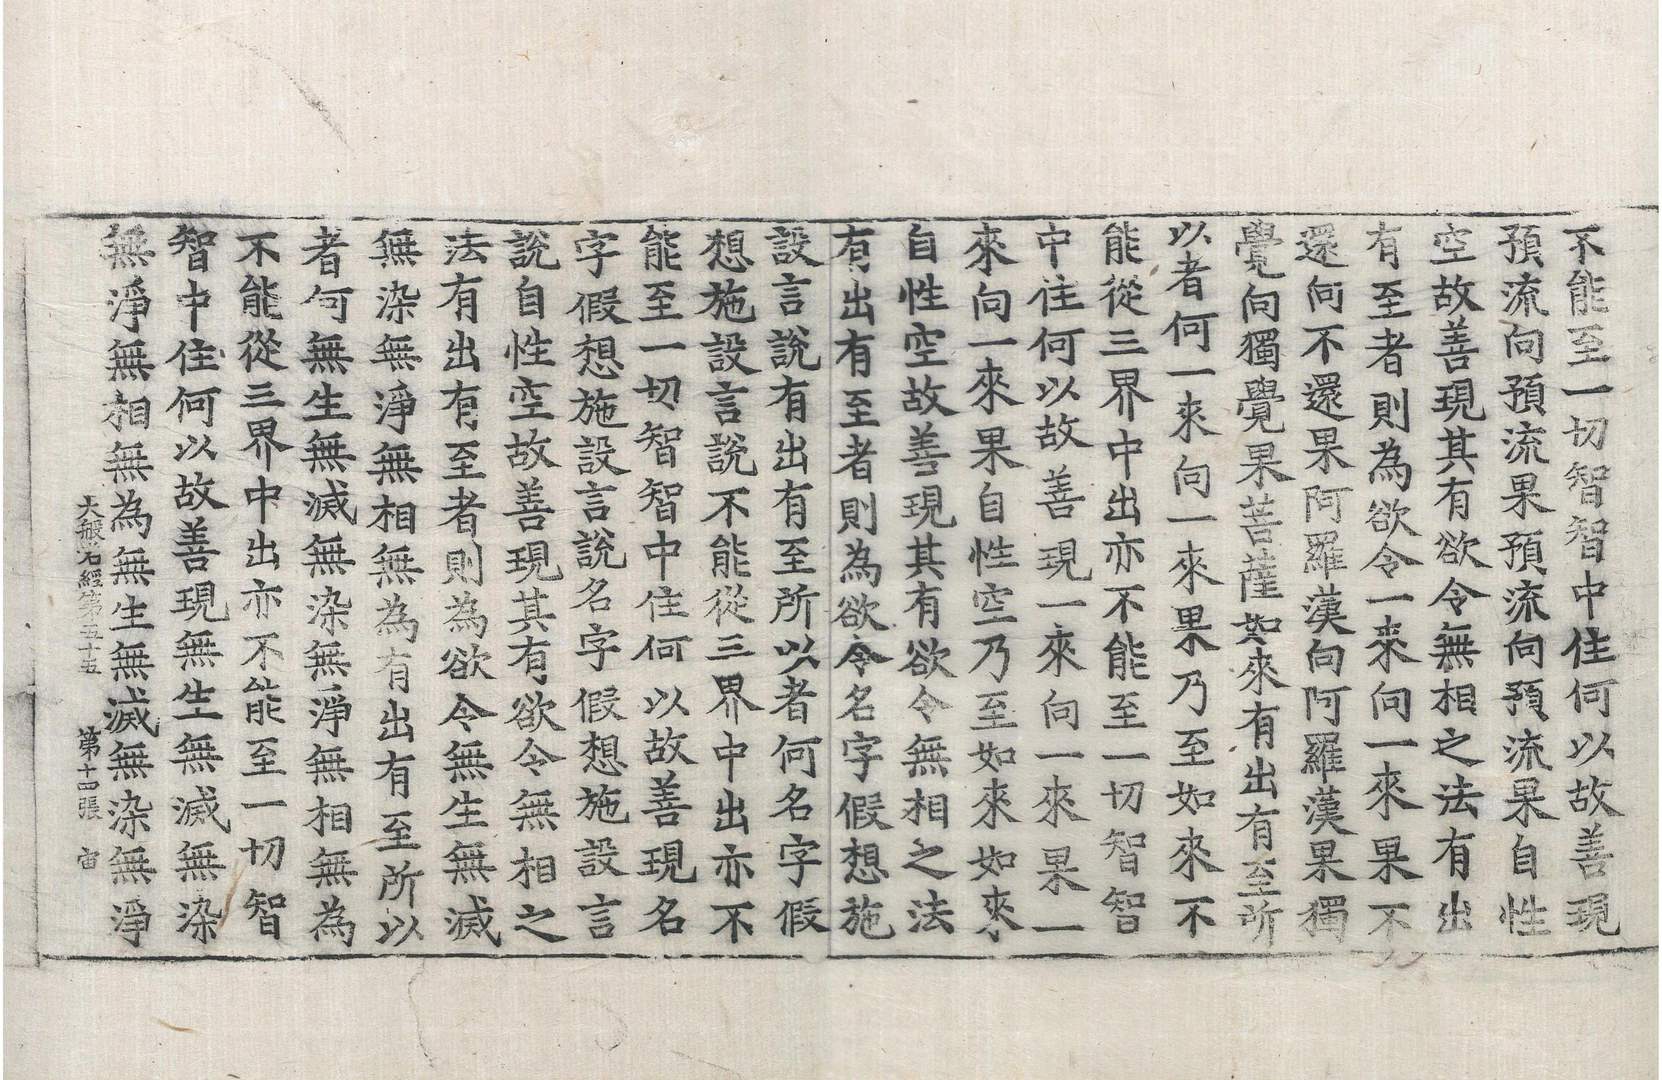 不能至一切智智中住何以故善現
預流向預流果預流向預流果自性
空故善現其有欲令無相之法有出
有至者則為欲令一來向一來果不
還向不還果阿羅漢向阿羅漢果獨
覺向獨覺果菩薩如來有出有至所
以者何一來向一來果乃至如來不
能從三界中出亦不能至一切智智
中住何以故善現一來向一來果一
來向一來果自性空乃至如來如來
自性空故善現其有欲令無相之法
有出有至者則為欲令名字假想施
設言說有出有至所以者何名字假
想施設言說不能從三界中出亦不
能至一切智智中住何以故善現名
字假想施設言說名字假想施設言
說自性空故善現其有欲令無相之
法有出有至者則為欲令無生無滅
無染無淨無相無為有出有至所以
者何無生無滅無染無淨無相無為
不能從三界中出亦不能至一切智
智中住何以故善現無生無滅無染
無淨無相無為無生無滅無染無淨
大般若經第五十五 第十四張 宙